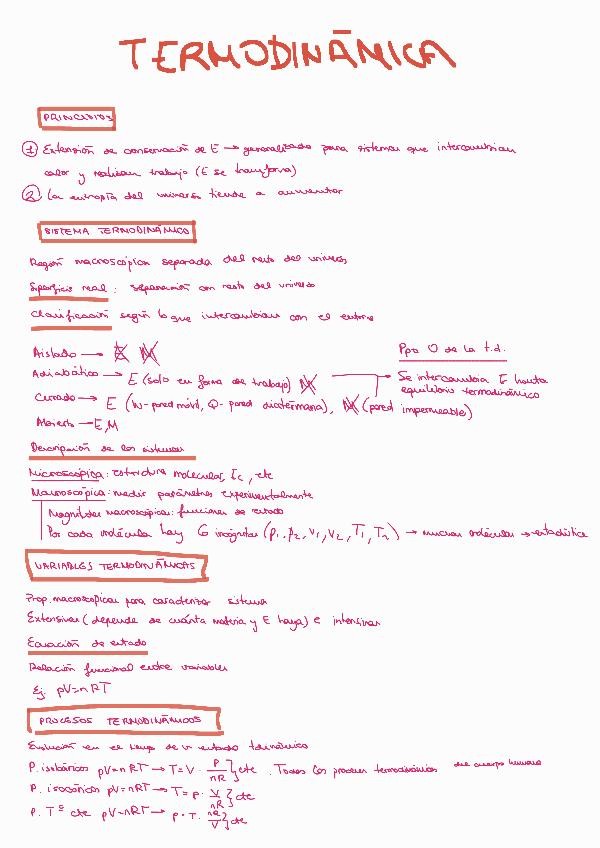 TERMODINÁMICA
PRINCIPIOS
① Extensión de conservación de E → generalizado para sistemas que intercambian
calor y realizan trabajo (E se transforma)
② La entropía del universo tiende a aumentar
SISTEMA TERMODINÁMICO
Región macroscópica separada del resto del universo
Superficie real: separación con resto del universo
Clasificación según lo que intercambian con el entorno
Aislado → E M
Adiabático → E (solo en forma de trabajo) M
Ppo 0 de la t.d.
Se intercambia E hasta
equilibrio termodinámico
Cerrado → E (W-pared móvil, Q-pared diatermana), M (pared impermeable)
Abierto → E, M
Descripción de los sistemas
Microscópica: estructura molecular, Ec, etc
Macroscópica: medir parámetros experimentalmente
Magnitudes macroscópicas: funciones de estado
Por cada molécula hay 6 incógnitas (p₁, p₂, v₁, v₂, T₁, T₂) → muchas moléculas → estadística
VARIABLES TERMODINÁMICAS
Prop. macroscópicas para caracterizar sistema
Extensivas (depende de cuánta materia y E haya) e intensivas
Ecuación de estado
Relación funcional entre variables
Ej. pV=nRT
PROCESOS TERMODINÁMICOS
Evolución en el tiempo de un estado
P. isobáricos pV=nRT → T = V · P/nR } cte. Todos los procesos termodinámicos del cuerpo humano
P. isocóricos pV=nRT → T = p · V/nR } cte
P. Tª cte pV=nRT → p = T · nR/V } cte